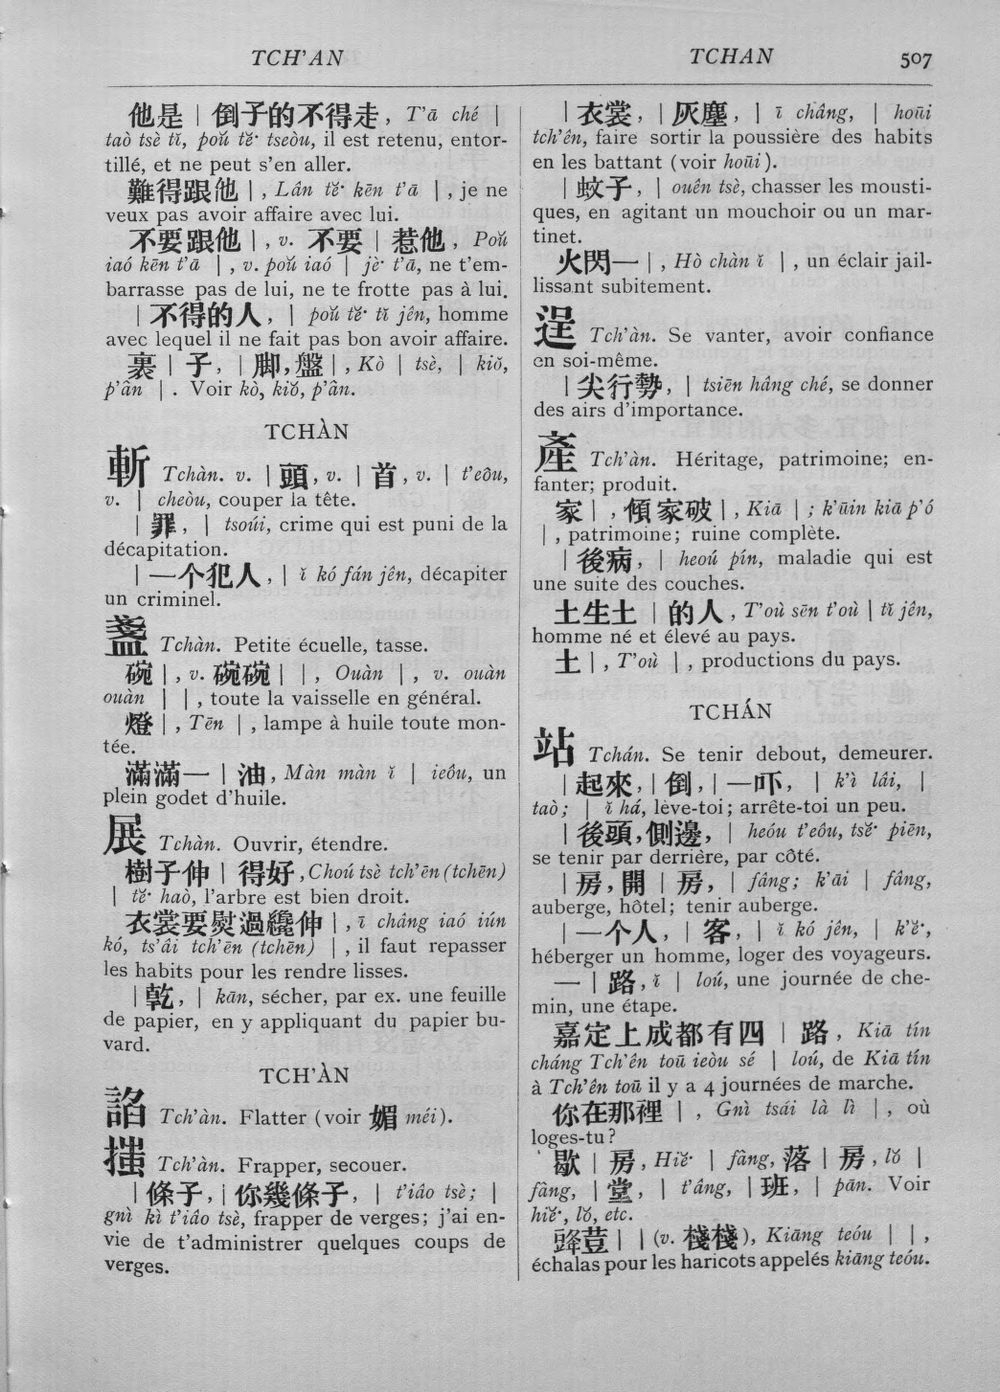 TCH’AN TCHAN 507
他是 | 倒子的不得走, T’ā ché |
taò tsè tĭ, poŭ tĕ· tseòu, il est retenu, entor-
tillé, et ne peut s’en aller.
難得跟他 | , Lân tĕ· kēn t’ā | , je ne
veux pas avoir affaire avec lui.
不要跟他 | , v. 不要 | 惹他, Poŭ
iaó kēn t’ā | , v. poŭ iaó | jè· t’ā, ne t’em-
barrasse pas de lui, ne te frotte pas à lui.
| 不得的人, | poŭ tĕ· tĭ jên, homme
avec lequel il ne fait pas bon avoir affaire.
裹 | 子, | 脚, 盤 | , Kò | tsè, | kiŏ,
p’ân | . Voir kò, kiŏ, p’ân.
TCHÀN
斬 Tchàn. v. | 頭, v. | 首, v. | t’eôu,
v. | cheòu, couper la tête.
| 罪, | tsoúi, crime qui est puni de la
décapitation.
| 一个犯人, | ĭ kó fán jên, décapiter
un criminel.
盞 Tchàn. Petite écuelle, tasse.
碗 | , v. 碗碗 | | , Ouàn | , v. ouàn
ouàn | | , toute la vaisselle en général.
燈 | , Tēn | , lampe à huile toute mon-
tée.
滿滿一 | 油, Màn màn ĭ | ieôu, un
plein godet d’huile.
展 Tchàn. Ouvrir, étendre.
樹子伸 | 得好, Choú tsè tch’ēn (tchēn)
| tĕ· haò, l’arbre est bien droit.
衣裳要熨過纔伸 | , ī châng iaó iún
kó, ts’âi tch’ēn (tchēn) | , il faut repasser
les habits pour les rendre lisses.
| 乾, | kān, sécher, par ex. une feuille
de papier, en y appliquant du papier bu-
vard.
TCH’ÀN
諂 Tch’àn. Flatter (voir 媚 méi).
㨻 Tch’àn. Frapper, secouer.
| 條子, | 你幾條子, | t’iâo tsè; |
gnì kì t’iâo tsè, frapper de verges; j’ai en-
vie de t’administrer quelques coups de
verges.
| 衣裳, | 灰塵, | ī châng, | hoūi
tch’ên, faire sortir la poussière des habits
en les battant (voir hoūi).
| 蚊子, | ouên tsè, chasser les mousti-
ques, en agitant un mouchoir ou un mar-
tinet.
火閃一 | , Hò chàn ĭ | , un éclair jail-
lissant subitement.
逞 Tch’àn. Se vanter, avoir confiance
en soi-même.
| 尖行勢, | tsiēn hâng ché, se donner
des airs d’importance.
產 Tch’àn. Héritage, patrimoine; en-
fanter; produit.
家 | , 傾家破 | , Kiā | ; k’ūin kiā p’ó
| , patrimoine; ruine complète.
| 後病, | heoú pín, maladie qui est
une suite des couches.
土生土 | 的人, T’où sēn t’où | tĭ jên,
homme né et élevé au pays.
土 | , T’où | , productions du pays.
TCHÁN
站 Tchán. Se tenir debout, demeurer.
| 起來, | 倒, | 一吓, | k’ì lâi, |
taò; | ĭ há, lève-toi; arrête-toi un peu.
| 後頭, 側邊, | heóu t’eôu, tsĕ· piēn,
se tenir par derrière, par côté.
| 房, 開 | 房, | fâng; k’āi | fâng,
auberge, hôtel; tenir auberge.
| 一个人, | 客, | ĭ kó jên, | k’ĕ·,
héberger un homme, loger des voyageurs.
一 | 路, ĭ | loú, une journée de che-
min, une étape.
嘉定上成都有四 | 路, Kiā tín
cháng Tch’ên toū ieòu sé | loú, de Kiā tín
à Tch’ên toū il y a 4 journées de marche.
你在那裡 | , Gnì tsái là lì | , où
loges-tu?
歇 | 房, Hiĕ· | fâng, 落 | 房, lŏ |
fâng, | 堂, | t’áng, | 班, | pān. Voir
hiĕ·, lŏ, etc.
豇荳 | | (v. 棧棧), Kiāng teóu | | ,
échalas pour les haricots appelés kiāng teóu.